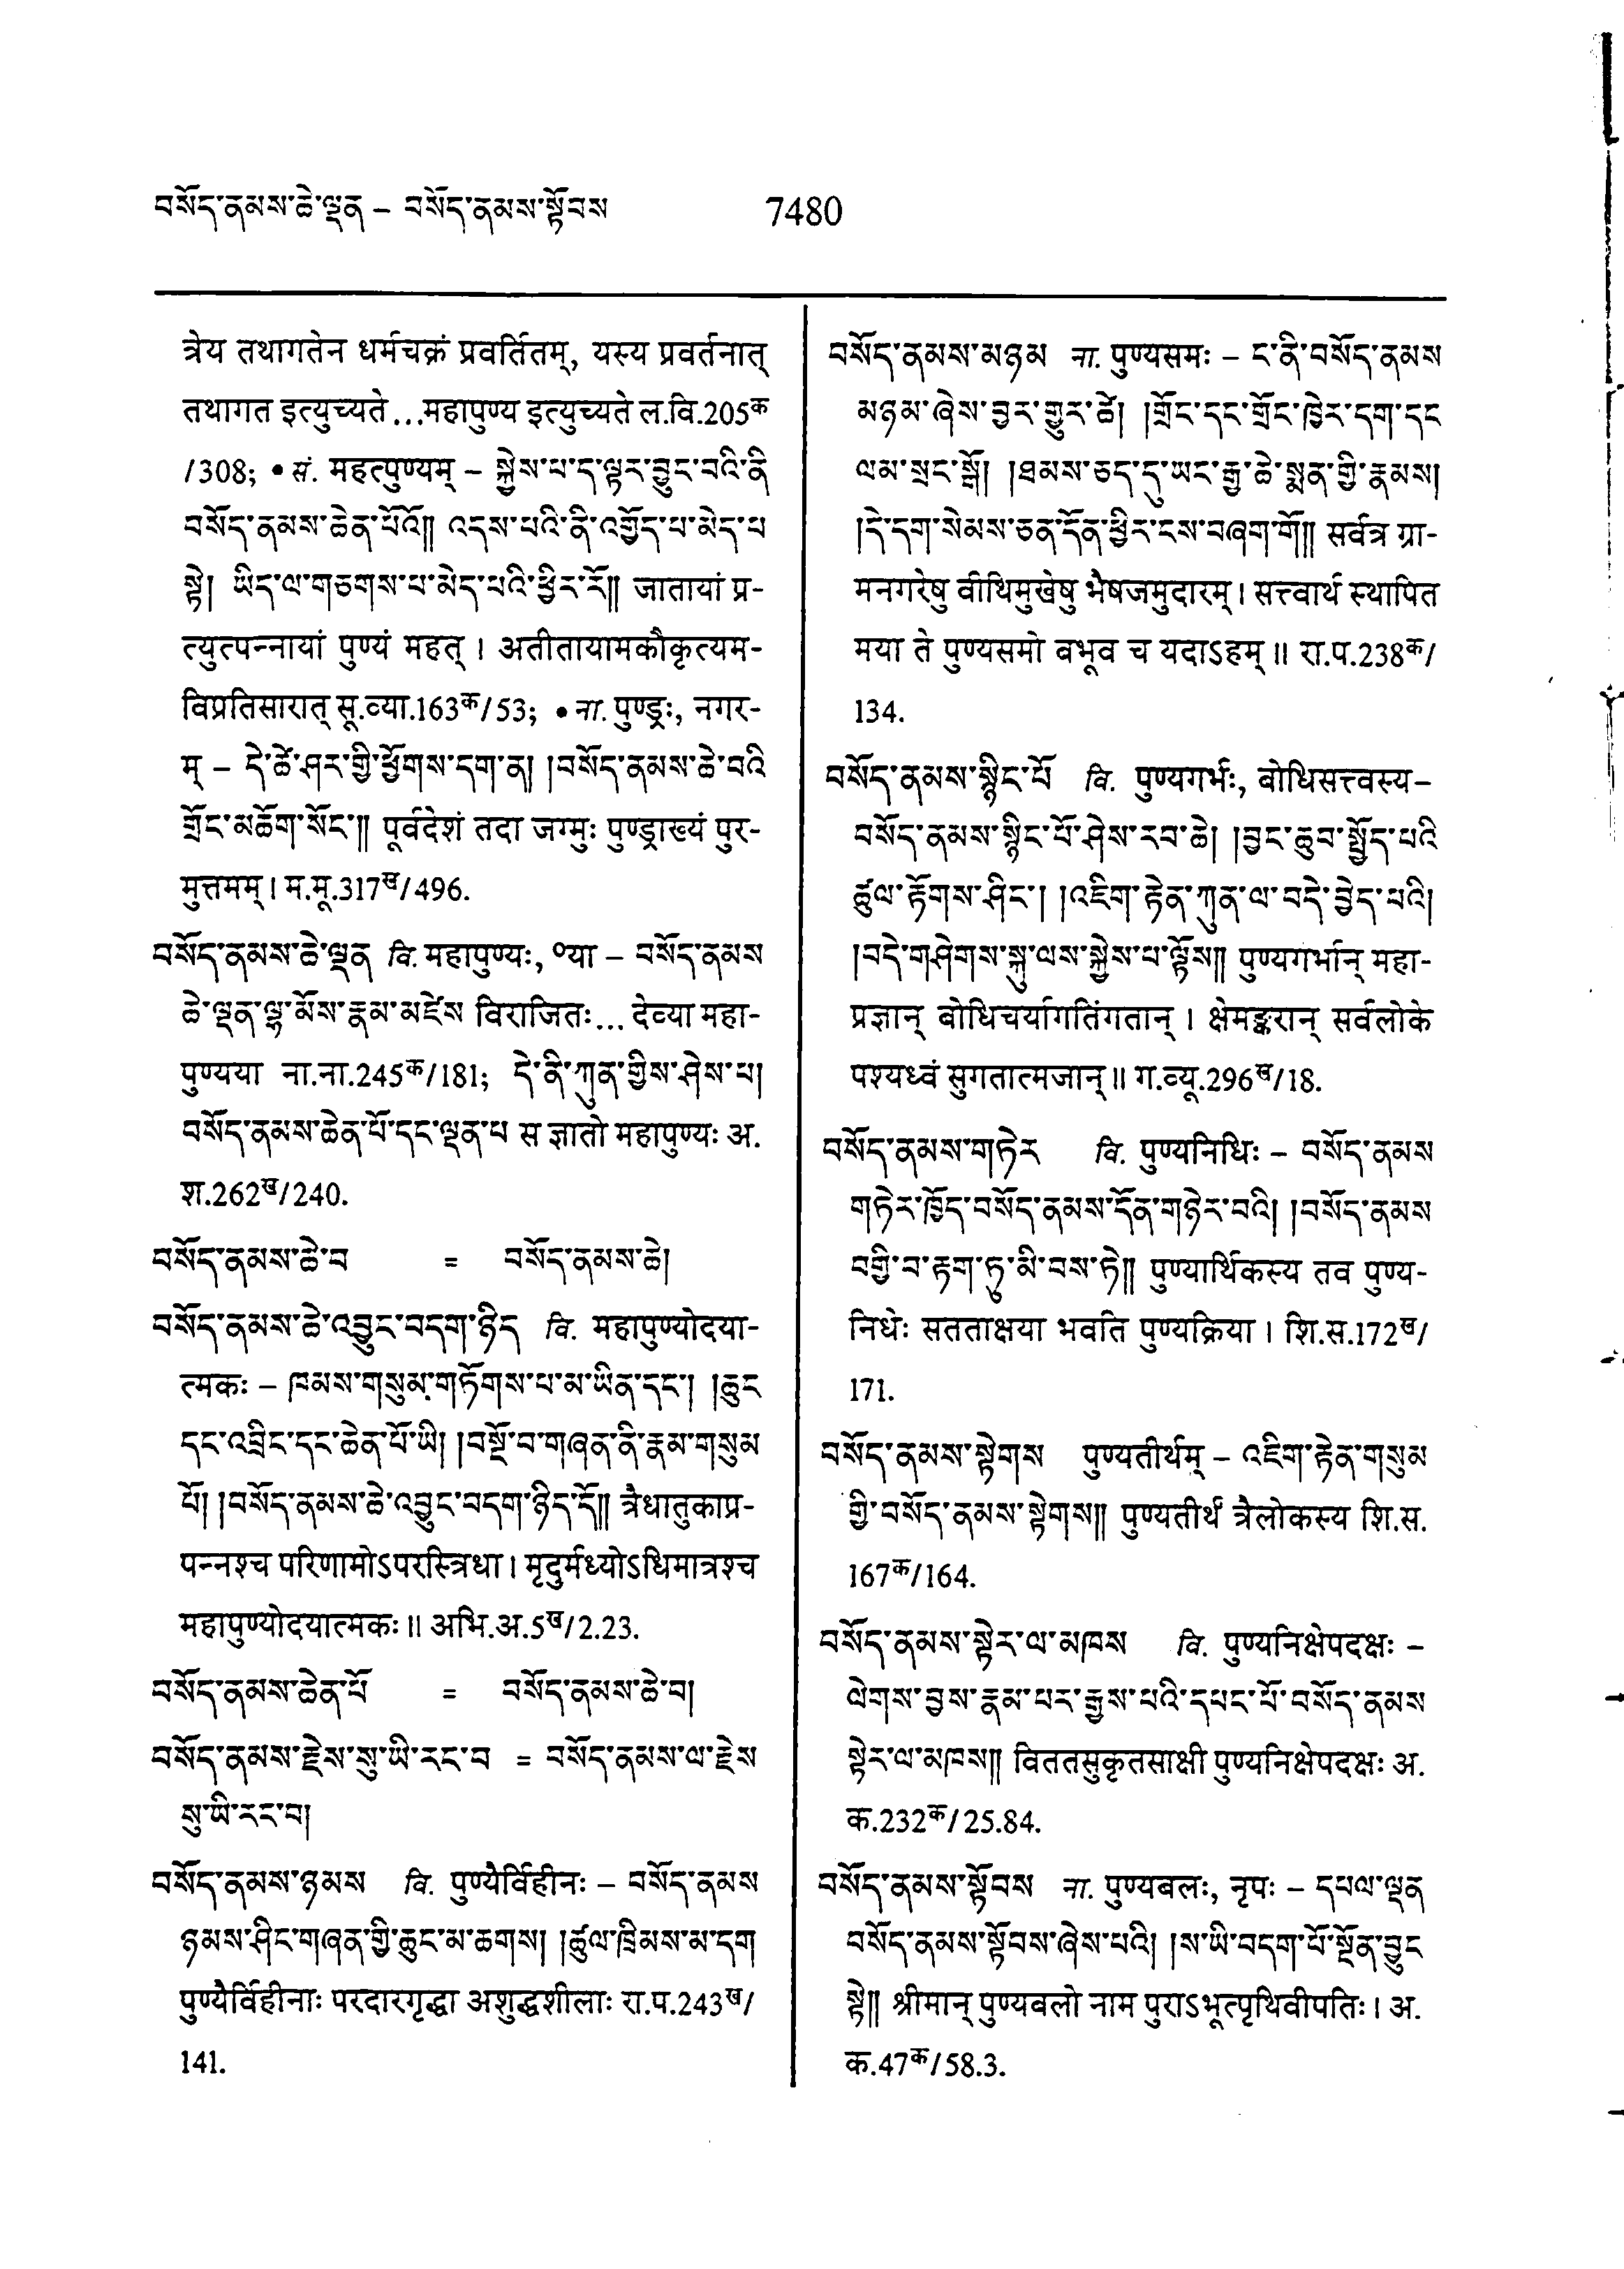 བསོད་ནམས་ཆེ་ལྡན – བསོད་ནམས་སྟོབས
7480
त्रेय तथागतेन धर्मचक्रं प्रवर्तितम्, यस्य प्रवर्तनात्
तथागत इत्युच्यते...महापुण्य इत्युच्यते ल.वि.205क
/308; • सं. महत्पुण्यम् – སྐྱེས་པ་ད་ལྟར་བྱུང་བའི་ནི
བསོད་ནམས་ཆེན་པོའོ།། འདས་པའི་ནི་འགྱོད་པ་མེད་པ
སྟེ། ཡིད་ལ་གཅགས་པ་མེད་པའི་ཕྱིར་རོ།། जातायां प्र-
त्युत्पन्नायां पुण्यं महत्। अतीतायामकौकृत्यम-
विप्रतिसारात् सू.व्या.163क/53; • ना. पुण्ड्रः, नगर-
म् – དེ་ཚེ་ཤར་གྱི་ཕྱོགས་དག་ན། །བསོད་ནམས་ཆེ་བའི
གྲོང་མཆོག་སོང་།། पूर्वदेशं तदा जग्मुः पुण्ड्राख्यं पुर-
मुत्तमम्। म.मू.317ख/496.
བསོད་ནམས་ཆེ་ལྡན वि. महापुण्यः, ०या – བསོད་ནམས
ཆེ་ལྡན་ལྷ་མོས་རྣམ་མཛེས विराजितः... देव्या महा-
पुण्यया ना.ना.245क/181; དེ་ནི་ཀུན་གྱིས་ཤེས་པ།
བསོད་ནམས་ཆེན་པོ་དང་ལྡན་པ स ज्ञातो महापुण्यः अ.
श.262ख/240.
བསོད་ནམས་ཆེ་བ = བསོད་ནམས་ཆེ།
བསོད་ནམས་ཆེ་འབྱུང་བདག་ཉིད वि. महापुण्योदया-
त्मकः – ཁམས་གསུམ་གཏོགས་པ་མ་ཡིན་དང་། །ཆུང
དང་འབྲིང་དང་ཆེན་པོ་ཡི། །བསྔོ་བ་གཞན་ནི་རྣམ་གསུམ
པོ། །བསོད་ནམས་ཆེ་འབྱུང་བདག་ཉིད་དོ།། त्रैधातुकाप्र-
पन्नश्च परिणामोऽपरस्त्रिधा। मृदुर्मध्योऽधिमात्रश्च
महापुण्योदयात्मकः॥ अभि.अ.5ख/2.23.
བསོད་ནམས་ཆེན་པོ = བསོད་ནམས་ཆེ་བ།
བསོད་ནམས་རྗེས་སུ་ཡི་རང་བ = བསོད་ནམས་ལ་རྗེས
སུ་ཡི་རང་བ།
བསོད་ནམས་ཉམས वि. पुण्यैर्विहीनः – བསོད་ནམས
ཉམས་ཤིང་གཞན་གྱི་ཆུང་མ་ཆགས། །ཚུལ་ཁྲིམས་མ་དག
पुण्यैर्विहीनाः परदारगृद्धा अशुद्धशीलाः रा.प.243ख/
141.
བསོད་ནམས་མཉམ ना. पुण्यसमः – ང་ནི་བསོད་ནམས
མཉམ་ཞེས་བྱར་གྱུར་ཚེ། །གྲོང་དང་གྲོང་ཁྱེར་དག་དང
ལམ་སྲང་སྒོ། །ཐམས་ཅད་དུ་ཡང་རྒྱ་ཆེ་སྨན་གྱི་རྣམས།
།དེ་དག་སེམས་ཅན་དོན་ཕྱིར་ངས་བཞག་གོ།། सर्वत्र ग्रा-
मनगरेषु वीथिमुखेषु भैषजमुदारम्। सत्त्वार्थ स्थापित
मया ते पुण्यसमो वभूव च यदाऽहम्॥ रा.प.238क/
134.
བསོད་ནམས་སྙིང་པོ वि. पुण्यगर्भः, बोधिसत्त्वस्य–
བསོད་ནམས་སྙིང་པོ་ཤེས་རབ་ཆེ། །བྱང་ཆུབ་སྤྱོད་པའི
ཚུལ་རྟོགས་ཤིང་། །འཇིག་རྟེན་ཀུན་ལ་བདེ་བྱེད་པའི།
།བདེ་གཤེགས་སྐུ་ལས་སྐྱེས་པ་ལྟོས།། पुण्यगर्भान् महा-
प्रज्ञान् बोधिचर्यागतिंगतान्। क्षेमङ्करान् सर्वलोके
पश्यध्वं सुगतात्मजान्॥ ग.व्यू.296ख/18.
བསོད་ནམས་གཏེར वि. पुण्यनिधिः – བསོད་ནམས
གཏེར་ཁྱོད་བསོད་ནམས་དོན་གཉེར་བའི། །བསོད་ནམས
བགྱི་བ་རྟག་ཏུ་མི་བས་ཏེ།། पुण्यार्थिकस्य तव पुण्य-
निधेः सतताक्षया भवति पुण्यक्रिया। शि.स.172ख/
171.
བསོད་ནམས་སྟེགས पुण्यतीर्थम् – འཇིག་རྟེན་གསུམ
གྱི་བསོད་ནམས་སྟེགས།། पुण्यतीर्थ त्रैलोकस्य शि.स.
167क/164.
བསོད་ནམས་སྟེར་ལ་མཁས वि. पुण्यनिक्षेपदक्षः –
ལེགས་བྱས་རྣམ་པར་རྒྱས་པའི་དཔང་པོ་བསོད་ནམས
སྟེར་ལ་མཁས།། विततसुकृतसाक्षी पुण्यनिक्षेपदक्षः अ.
क.232क/25.84.
བསོད་ནམས་སྟོབས ना. पुण्यबलः, नृपः – དཔལ་ལྡན
བསོད་ནམས་སྟོབས་ཞེས་པའི། །ས་ཡི་བདག་པོ་སྔོན་བྱུང
སྟེ།། श्रीमान् पुण्यवलो नाम पुराऽभूत्पृथिवीपतिः। अ.
क.47क/58.3.